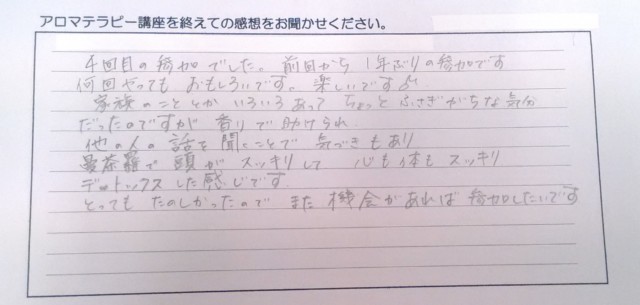 アロマテラピー講座を終えての感想をお聞かせください。
4回目の参加でした。前回から1年ぶりの参加です
何回やってもおもしろいです。楽しいです♪
家族のこととかいろいろあってちょっとふさぎがちな気分
だったのですが香りで助けられ
他の人の話を聞くことで気づきもあり
曼荼羅で頭がスッキリして心も体もスッキリ
デトックスした感じです
とってもたのしかったのでまた機会があれば参加したいです